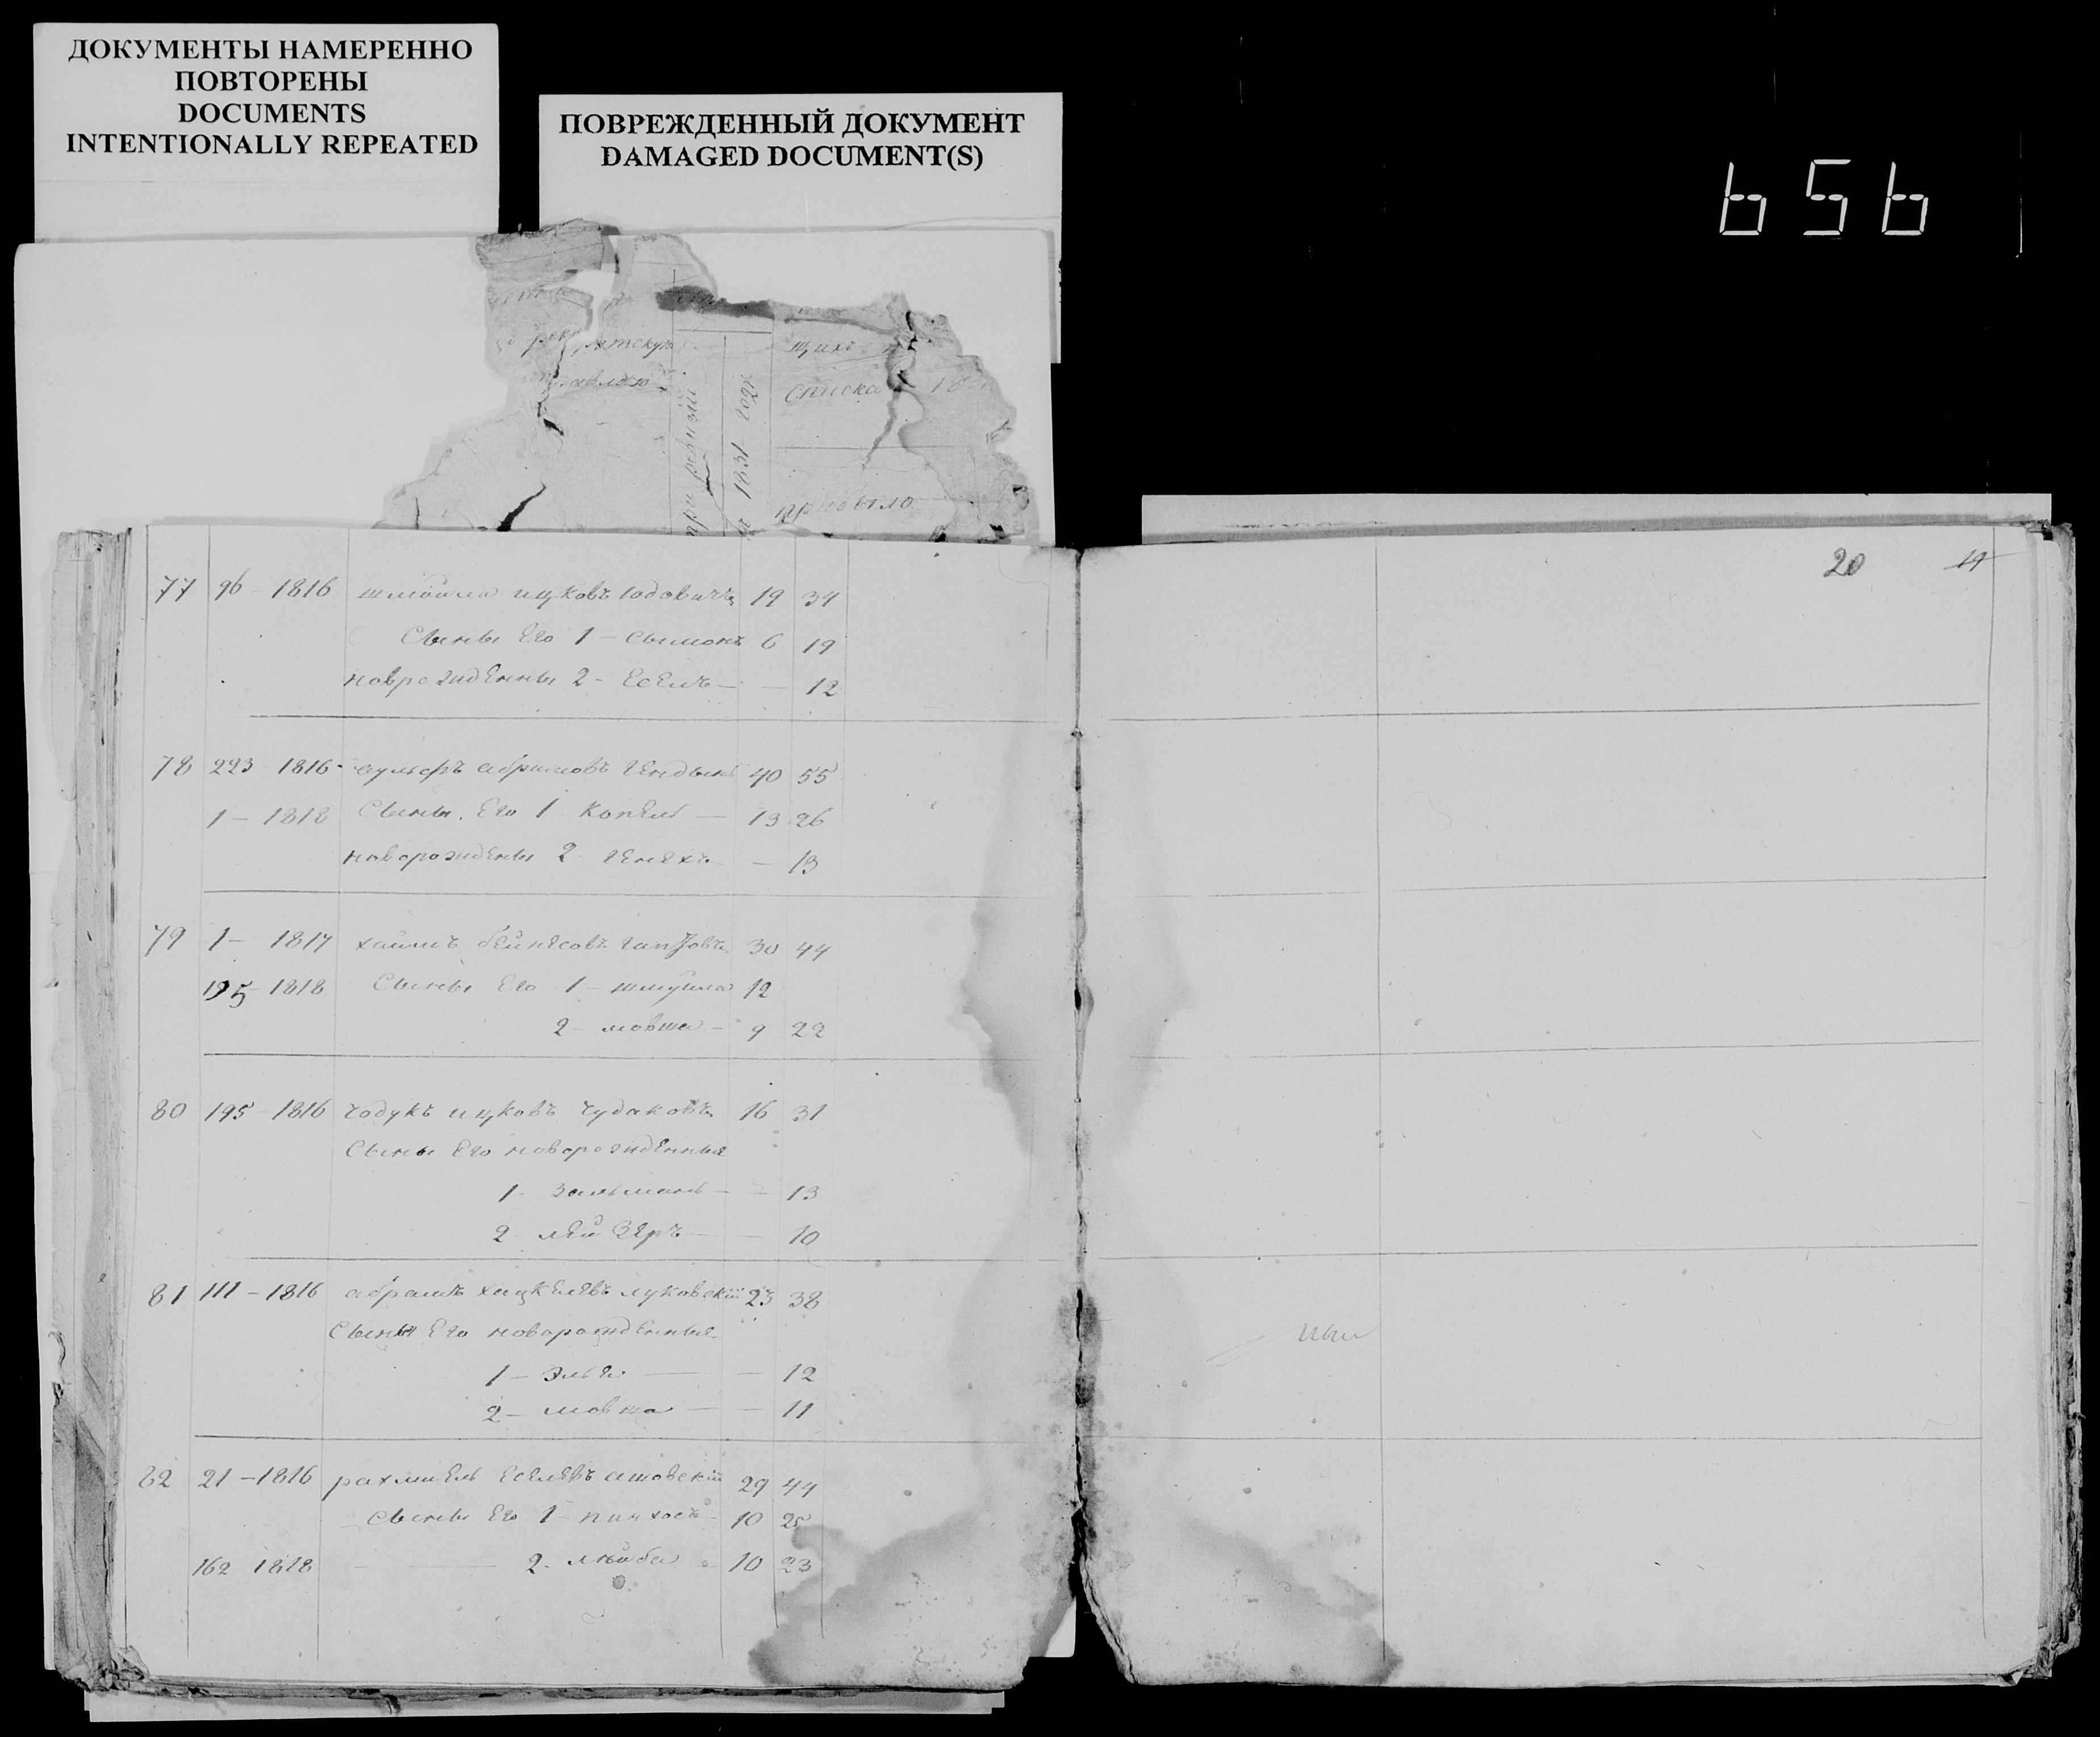 ДОКУМЕНТЫ НАМЕРЕННО
ПОВТОРЕНЫ
DOCUMENTS
INTENTIONALLY REPEATED
ПОВРЕЖДЕННЫЙ ДОКУМЕНТ
DAMAGED DOCUMENT(S)
656
при ревизіи
1831 года
щихъ
списка
прибыло
20 19
77 96 - 1816 шмуйла ицковъ 19 34
Сыны Его 1 - Сымонъ 6 19
новрожденны 2 - Есель - - 12
78 223 1816 вульфъ абрамовъ 40 55
1 - 1818 Сыны Его 1 Копель - 13 26
новорождены 2 - генехъ - 13
79 1 - 1817 хаимъ бейнесовъ 30 44
195 - 1818 Сыны Его 1 - шмуйла 12
2 - мовша - 9 22
80 195 - 1816 ицковъ чудаковъ 16 31
Сыны Его новорожденные
1 - Зальманъ - - 13
2 - лейзеръ - 10
81 111 - 1816 абрамъ хацкелевъ луковскій 23 38
Сыны Его новорожденные
1 - Элья - - 12
2 - мовша - - 11
82 21 - 1816 рахмиель Еселевъ 29 44
Сыны Его 1 - пинхосъ - 10 25
162 1818 - 2 - лейба - 10 23